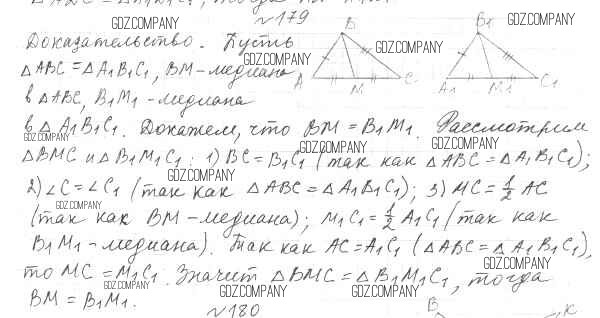 №179
GDZ.COMPANY
Доказательство. Пусть
GDZ.COMPANY
△ABC=△A1B1C1, BM-медиана
в △ABC, B1M1-медиана
в △A1B1C1. Докажем, что BM=B1M1. Рассмотрим
△BMC и △B1M1C1: 1) BC=B1C1 (так как △ABC=△A1B1C1);
2) ∠C=∠C1 (так как △ABC=△A1B1C1); 3) MC=½AC
(так как BM-медиана); M1C1=½A1C1 (так как
B1M1-медиана). Так как AC=A1C1 (△ABC=△A1B1C1),
то MC=M1C1. Значит △BMC=△B1M1C1, тогда
BM=B1M1.
№180
B
A
M
C
B1
A1
M1
C1
GDZ.COMPANY
GDZ.COMPANY
GDZ.COMPANY
GDZ.COMPANY
GDZ.COMPANY
GDZ.COMPANY
GDZ.COMPANY
GDZ.COMPANY
GDZ.COMPANY
GDZ.COMPANY
GDZ.COMPANY
GDZ.COMPANY
B
K